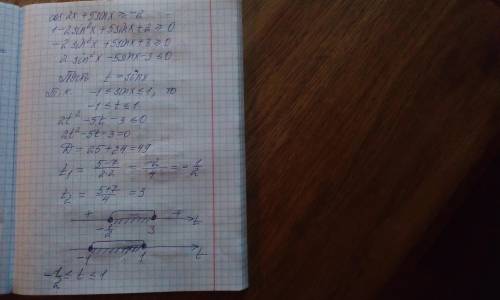 cos2x + 5sinx ≥ -2
1 - 2sin²x + 5sinx + 2 ≥ 0
-2sin²x + 5sinx + 3 ≥ 0
2sin²x - 5sinx - 3 ≤ 0
Пусть t = sinx
Т. к. -1 ≤ sinx ≤ 1, то
-1 ≤ t ≤ 1
2t² - 5t - 3 ≤ 0
2t² - 5t - 3 = 0
D = 25 + 24 = 49
t₁ = (5-7)/(2·2) = -2/4 = -1/2
t₂ = (5+7)/4 = 3
+ - + t
-1/2 3
-1 1 t
-1/2 ≤ t ≤ 1